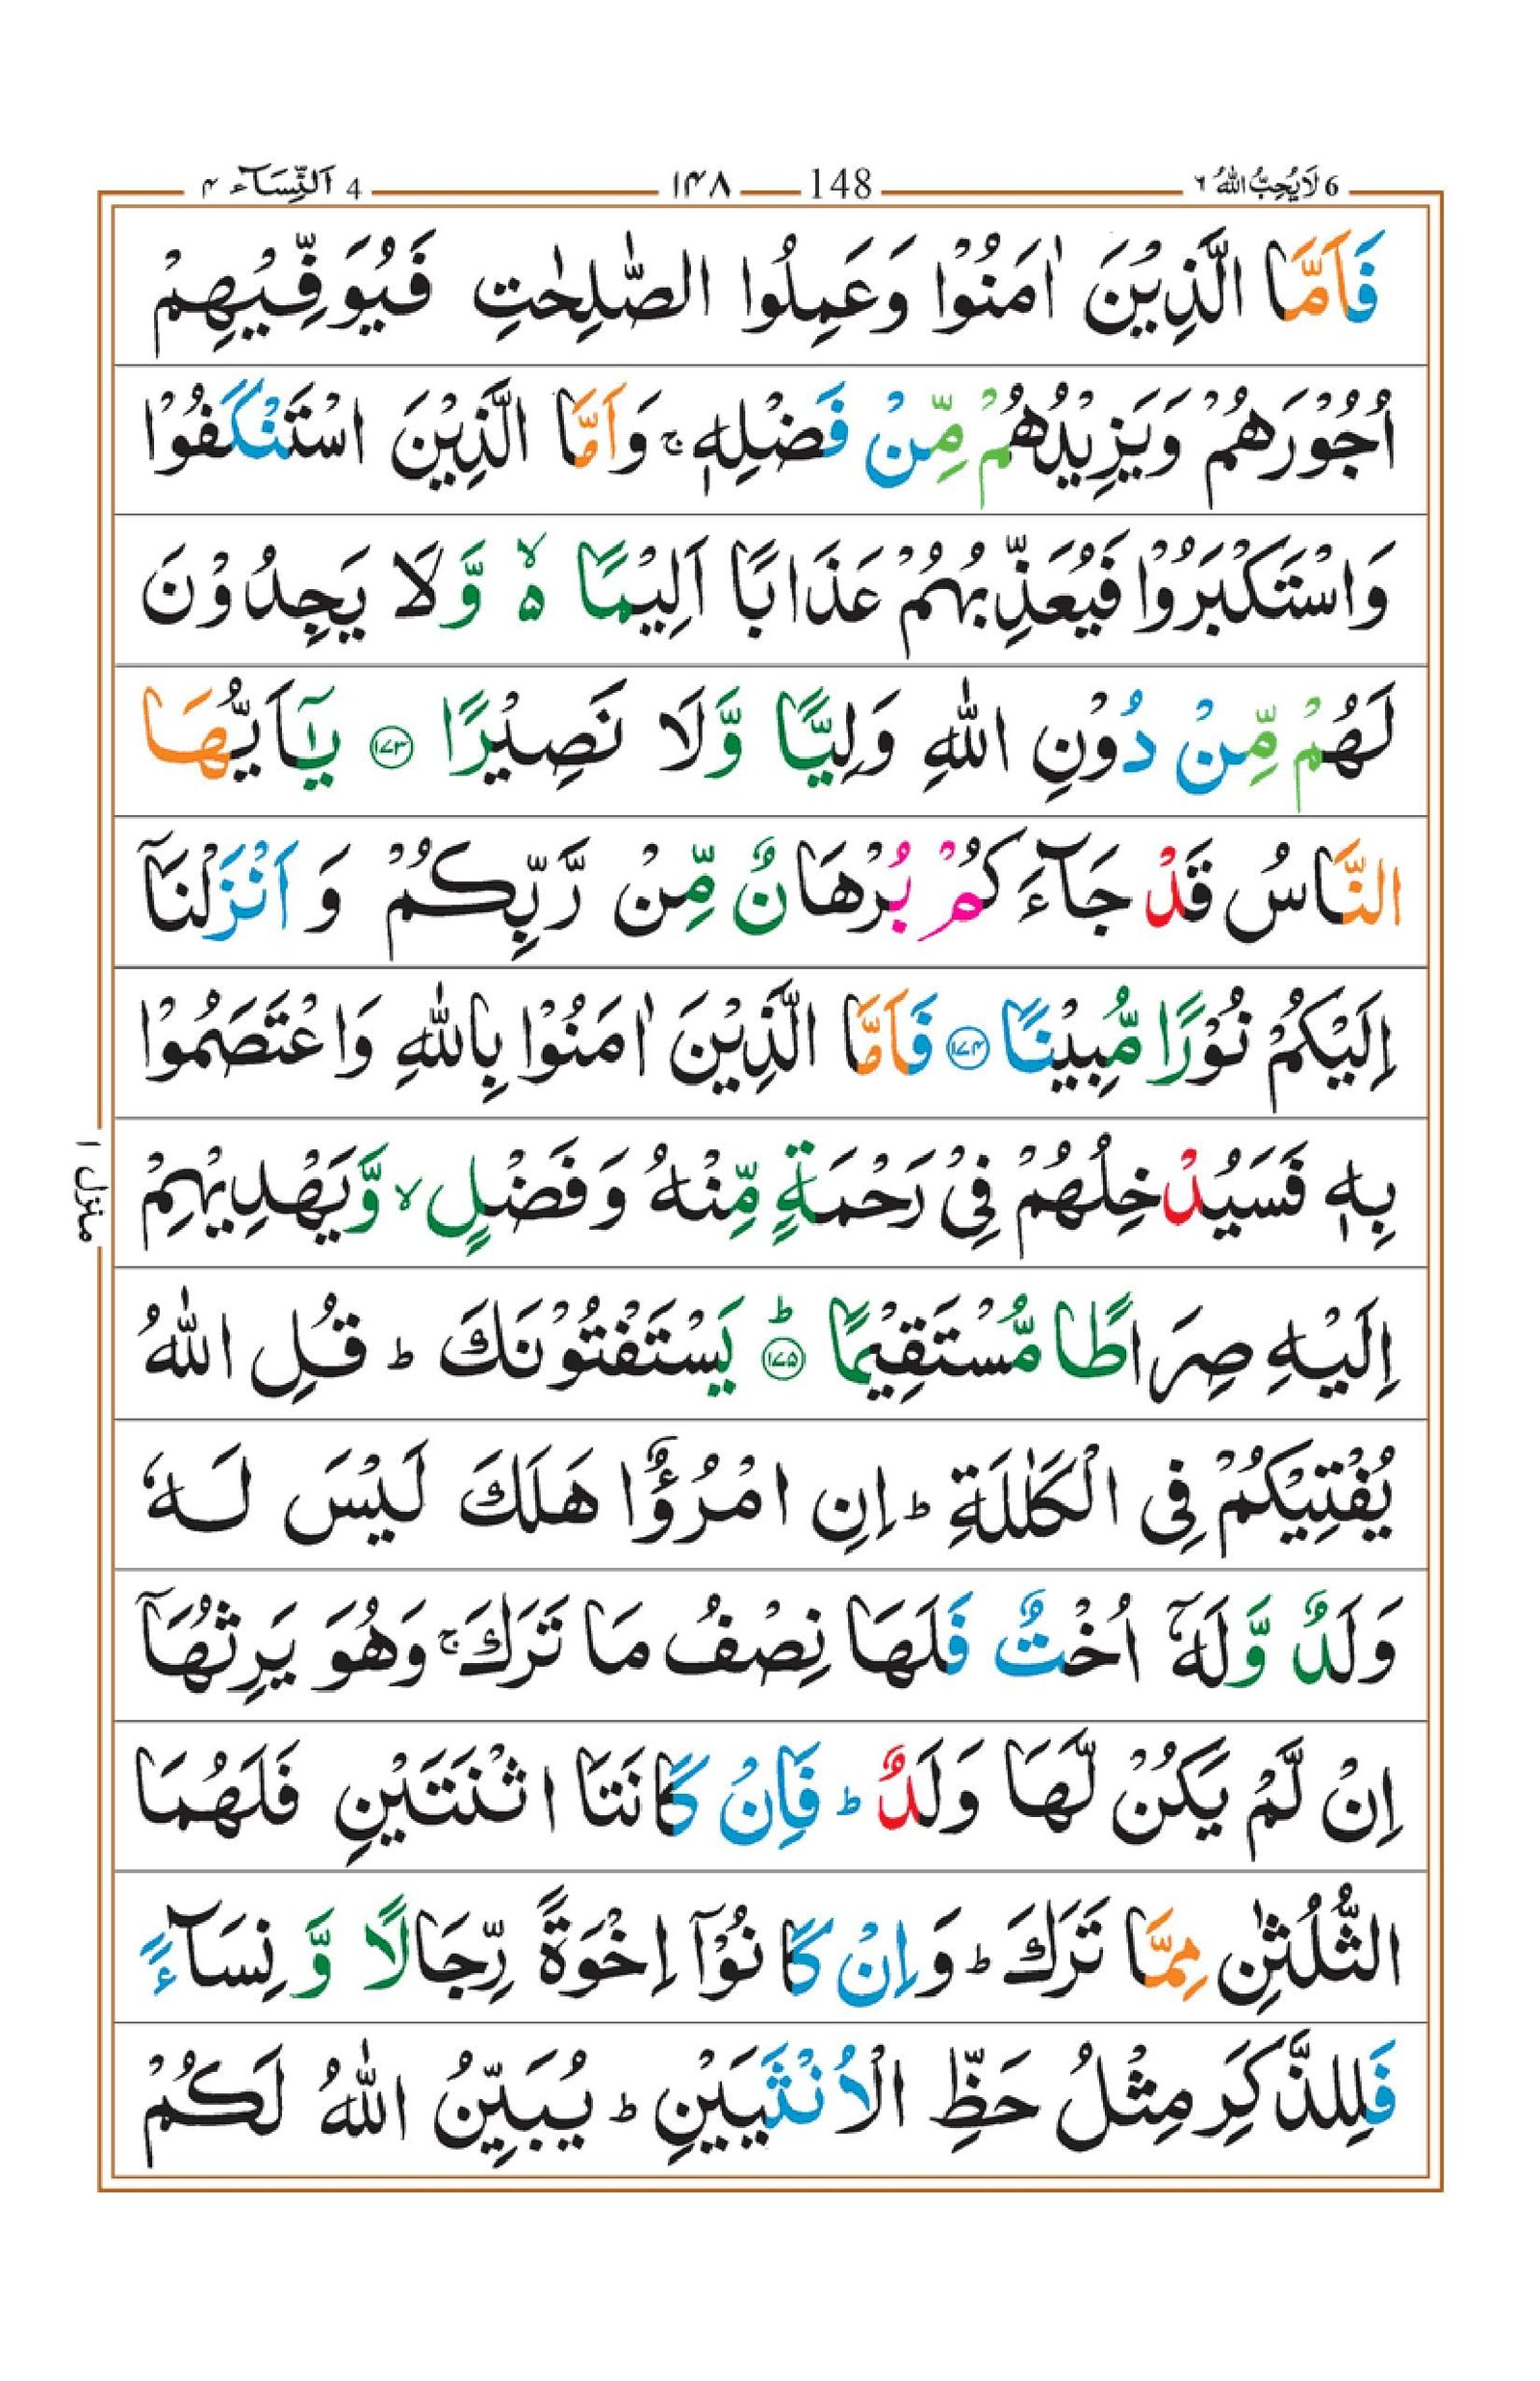 6 لَا يُحِبُّ اللهُ ٦
148 ١٤٨
4 اَلنِّسَآء ٤
فَاَمَّا الَّذِيْنَ اٰمَنُوْا وَعَمِلُوا الصّٰلِحٰتِ فَيُوَفِّيْهِمْ
اُجُوْرَهُمْ وَيَزِيْدُهُمْ مِّنْ فَضْلِهٖ ۚ وَاَمَّا الَّذِيْنَ اسْتَنْكَفُوْا
وَاسْتَكْبَرُوْا فَيُعَذِّبُهُمْ عَذَابًا اَلِيْمًا ۵ۙ وَّلَا يَجِدُوْنَ
لَهُمْ مِّنْ دُوْنِ اللهِ وَلِيًّا وَّلَا نَصِيْرًا ﴿۱۷۳﴾ يٰۤاَيُّهَا
النَّاسُ قَدْ جَآءَكُمْ بُرْهَانٌ مِّنْ رَّبِّكُمْ وَاَنْزَلْنَاۤ
اِلَيْكُمْ نُوْرًا مُّبِيْنًا ﴿۱۷۴﴾ فَاَمَّا الَّذِيْنَ اٰمَنُوْا بِاللهِ وَاعْتَصَمُوْا
بِهٖ فَسَيُدْخِلُهُمْ فِيْ رَحْمَةٍ مِّنْهُ وَفَضْلٍ ۙ وَّيَهْدِيْهِمْ
اِلَيْهِ صِرَاطًا مُّسْتَقِيْمًا ﴿۱۷۵﴾ؕ يَسْتَفْتُوْنَكَ ؕ قُلِ اللهُ
يُفْتِيْكُمْ فِي الْكَلٰلَةِ ؕ اِنِ امْرُؤٌا هَلَكَ لَيْسَ لَهٗ
وَلَدٌ وَّلَهٗۤ اُخْتٌ فَلَهَا نِصْفُ مَا تَرَكَ ۚ وَهُوَ يَرِثُهَاۤ
اِنْ لَّمْ يَكُنْ لَّهَا وَلَدٌ ؕ فَاِنْ كَانَتَا اثْنَتَيْنِ فَلَهُمَا
الثُّلُثٰنِ مِمَّا تَرَكَ ؕ وَاِنْ كَانُوْۤا اِخْوَةً رِّجَالًا وَّنِسَآءً
فَلِلذَّكَرِ مِثْلُ حَظِّ الْاُنْثَيَيْنِ ؕ يُبَيِّنُ اللهُ لَكُمْ
منزل ۱